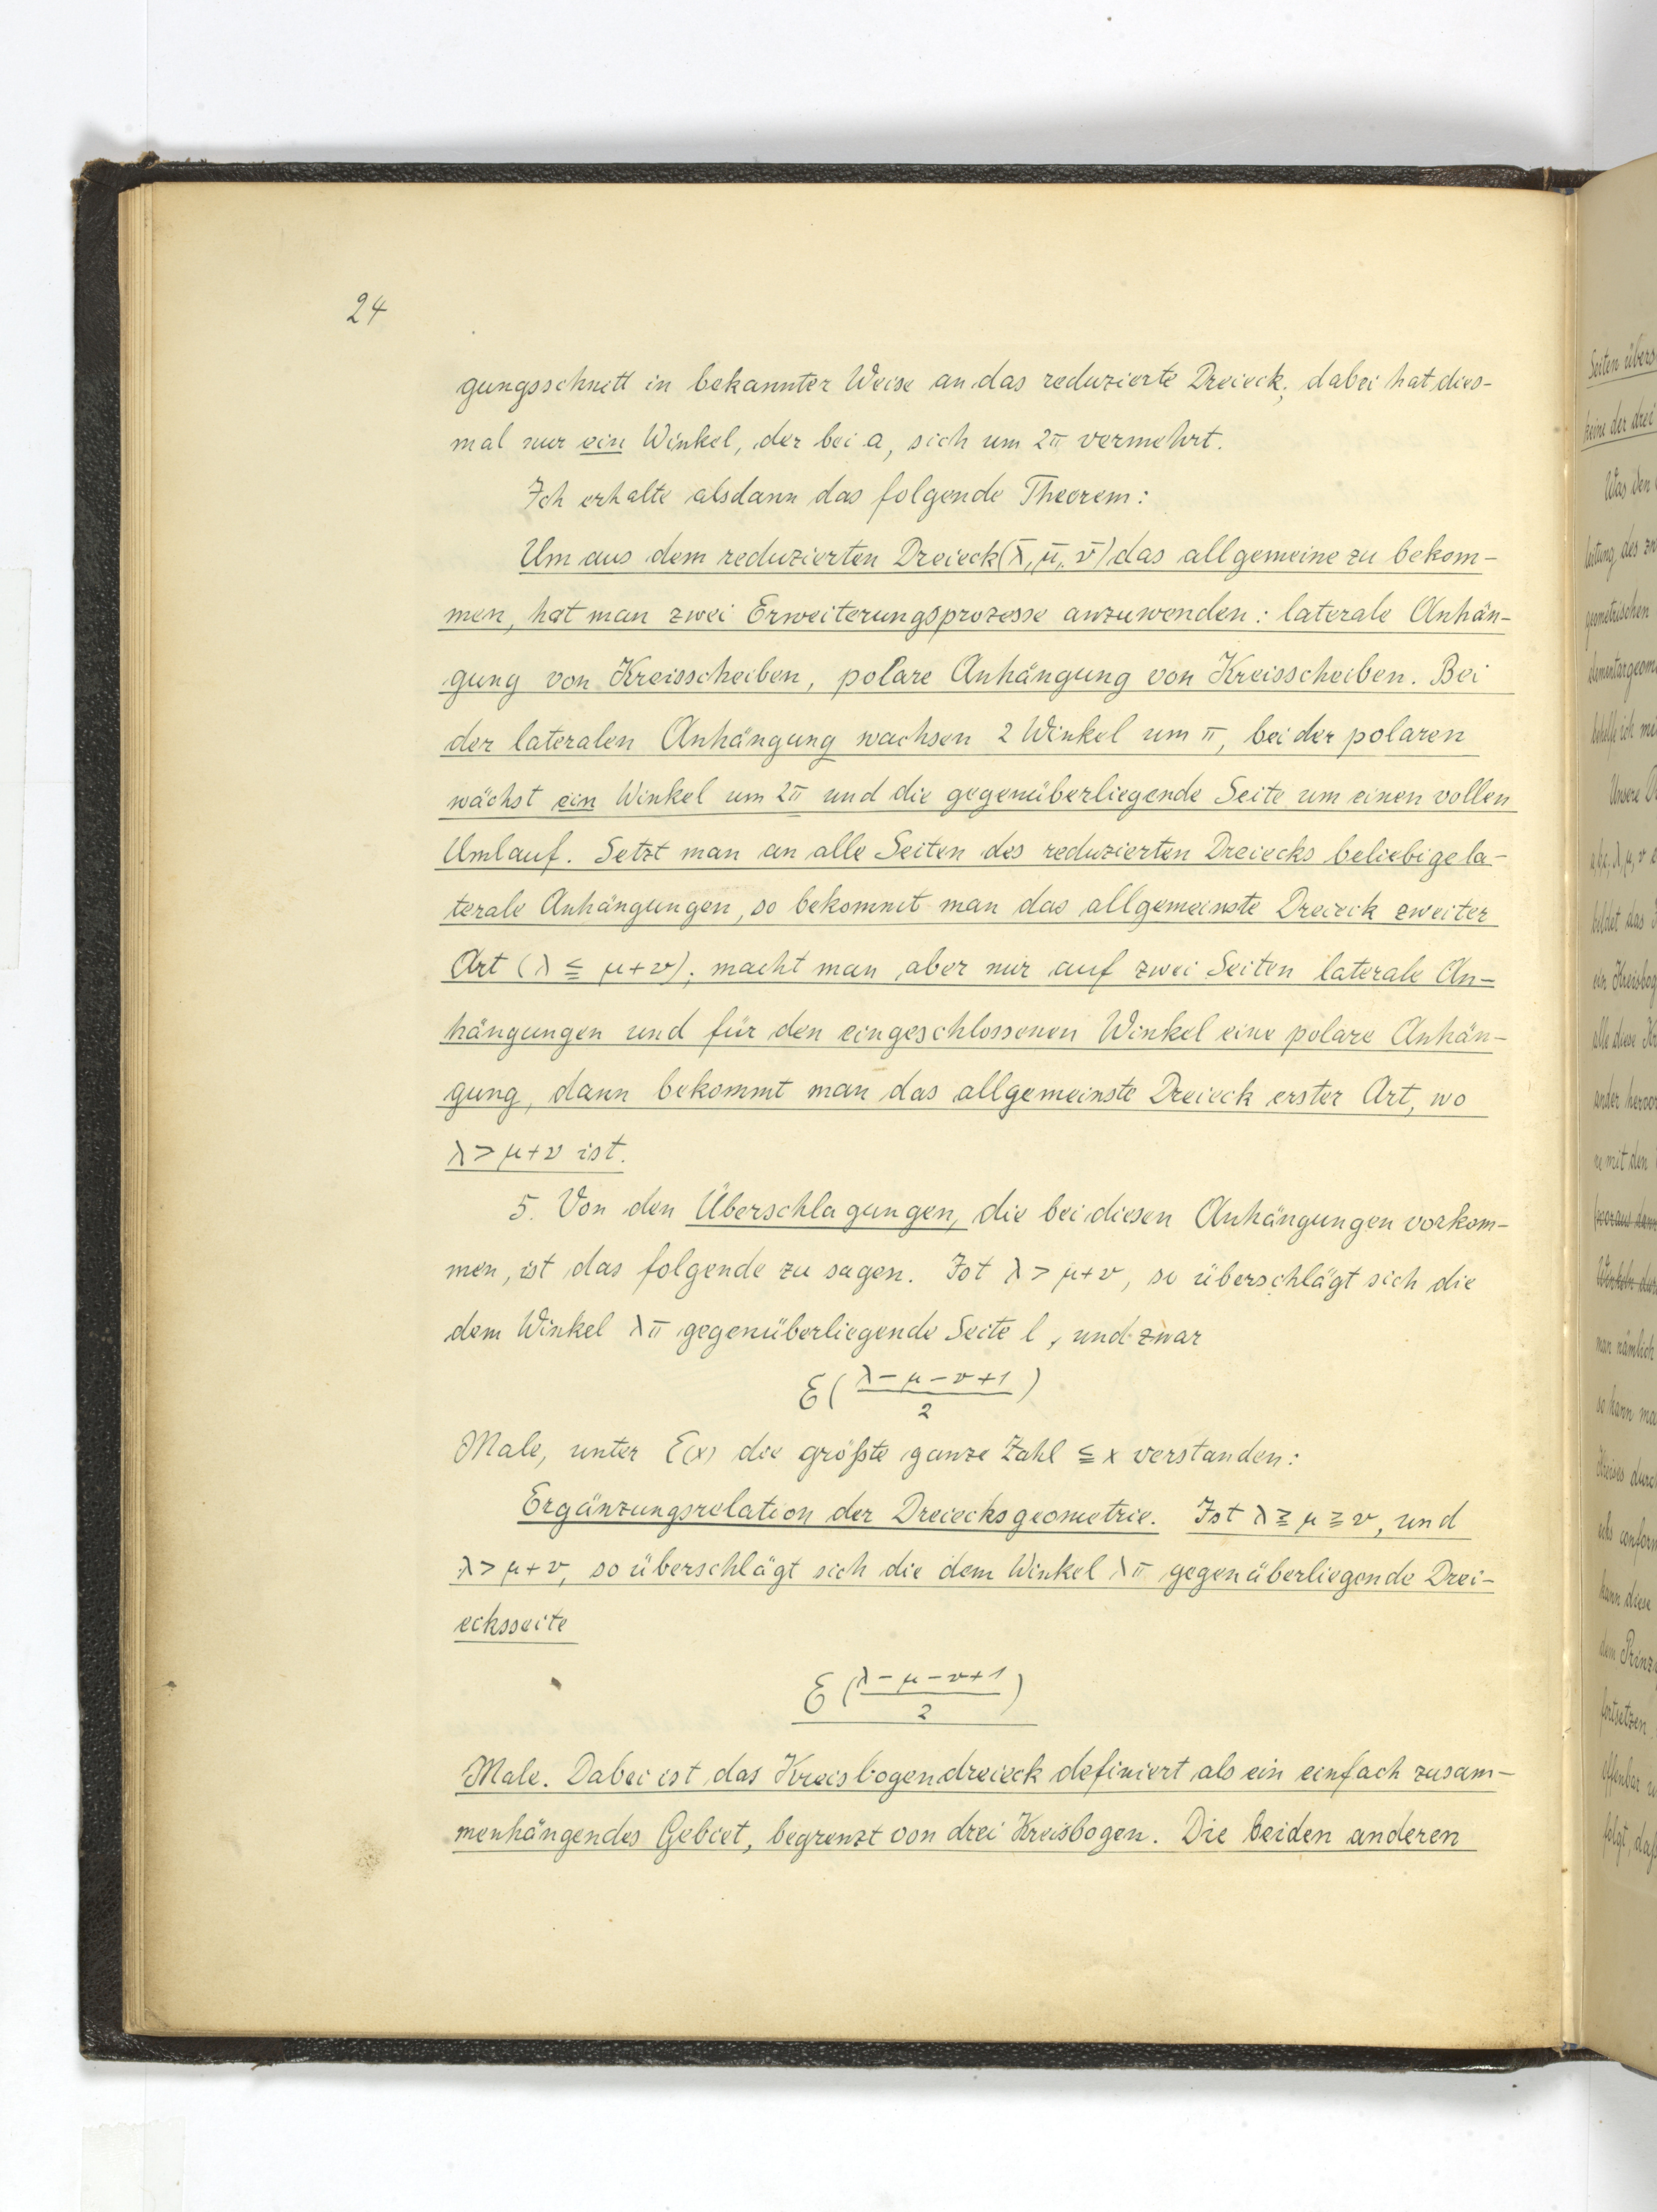 24
gungsschnitt in bekannter Weise an das reduzierte Dreieck; dabei hat dies-
mal nur ein Winkel, der bei a, sich um 2π vermehrt.
Ich erhalte alsdann das folgende Theorem:
Um aus dem reduzierten Dreieck (λ̄, μ̄, ν̄) das allgemeine zu bekom-
men, hat man zwei Erweiterungsprozesse anzuwenden: laterale Anhän-
gung von Kreisscheiben, polare Anhängung von Kreisscheiben. Bei
der lateralen Anhängung wachsen 2 Winkel um π, bei der polaren
wächst ein Winkel um 2π und die gegenüberliegende Seite um einen vollen
Umlauf. Setzt man an alle Seiten des reduzierten Dreiecks beliebige la-
terale Anhängungen, so bekommt man das allgemeinste Dreieck zweiter
Art (λ ≦ μ+ν); macht man aber nur auf zwei Seiten laterale An-
hängungen und für den eingeschlossenen Winkel eine polare Anhän-
gung, dann bekommt man das allgemeinste Dreieck erster Art, wo
λ > μ+ν ist.
5. Von den Überschlagungen, die bei diesen Anhängungen vorkom-
men, ist das folgende zu sagen. Ist λ > μ+ν, so überschlägt sich die
dem Winkel λπ gegenüberliegende Seite l, und zwar
E((λ-μ-ν+1)/2)
Male, unter E(x) die größte ganze Zahl ≦ x verstanden:
Ergänzungsrelation der Dreiecksgeometrie. Ist λ ≧ μ ≧ ν, und
λ > μ+ν, so überschlägt sich die dem Winkel λπ gegenüberliegende Drei-
ecksseite
E((λ-μ-ν+1)/2)
Male. Dabei ist das Kreisbogendreieck definiert als ein einfach zusam-
menhängendes Gebiet, begrenzt von drei Kreisbogen. Die beiden anderen
Seiten
keine der drei
Was den
des
geometrischen
ich
Unsere
bildet das
ein
alle diese
ander
mit den
man nämlich
so kann
Kreises
kann diese
dem
fortsetzen
offenbar
folgt, daß